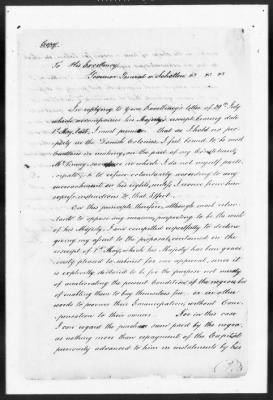 Copy.
To His Excellency
Governor General v. Scholten
In replying to Your Excellency's letter of 29th July
which accompanies his Majesty's rescript bearing date
1st May last, I must premise that as I hold no pro-
perty in the Danish Colonies, I feel bound to be most
cautious in making, on the part of my friend &
Mr. any in which I do not myself parti-
cipate, & to refuse voluntarily according to any
encroachment on his rights, unless I receive from him
express instructions to that effect.
On this principle therefore, although most reluc-
tant to oppose any measure, purporting to be the wish
of his Majesty, I am compelled respectfully to decline
giving my assent to the proposal, contained in the
rescript of 1st May which his Majesty has been graci-
ously pleased to submit for our approval, since it
is explicitly declared to be for the purpose not merely
of ameliorating the present condition of the negroes, but
of enabling them to buy themselves free, or in other
words to procure their Emancipation, without Com-
pensation to their owners. For in this case
I can regard the purchase sum paid by the negro,
as nothing more than repayment of the Capital
previously advanced to him in instalments by his